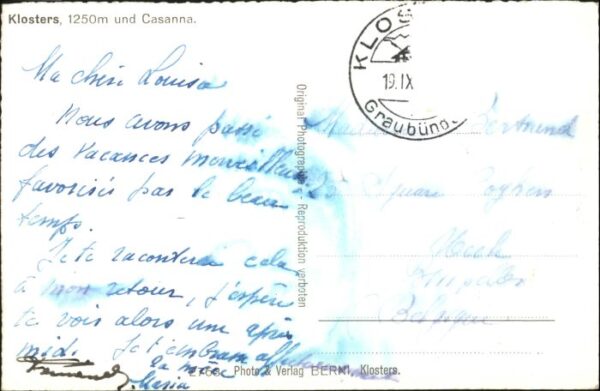 Klosters, 1250m und Casanna.
Ma chère Louisa
Nous avons passé
des vacances merveilleuses
favorisés par le beau
temps.
Je te raconterai cela
à mon retour, j'espère
te voir alors une après
midi. Je t'embrasse
Maria
Original Photographie - Reproduktion verboten
Photo & Verlag BERNI, Klosters.
KLOS
19.IX
Graubünd
Bertrand
Square
Belgique